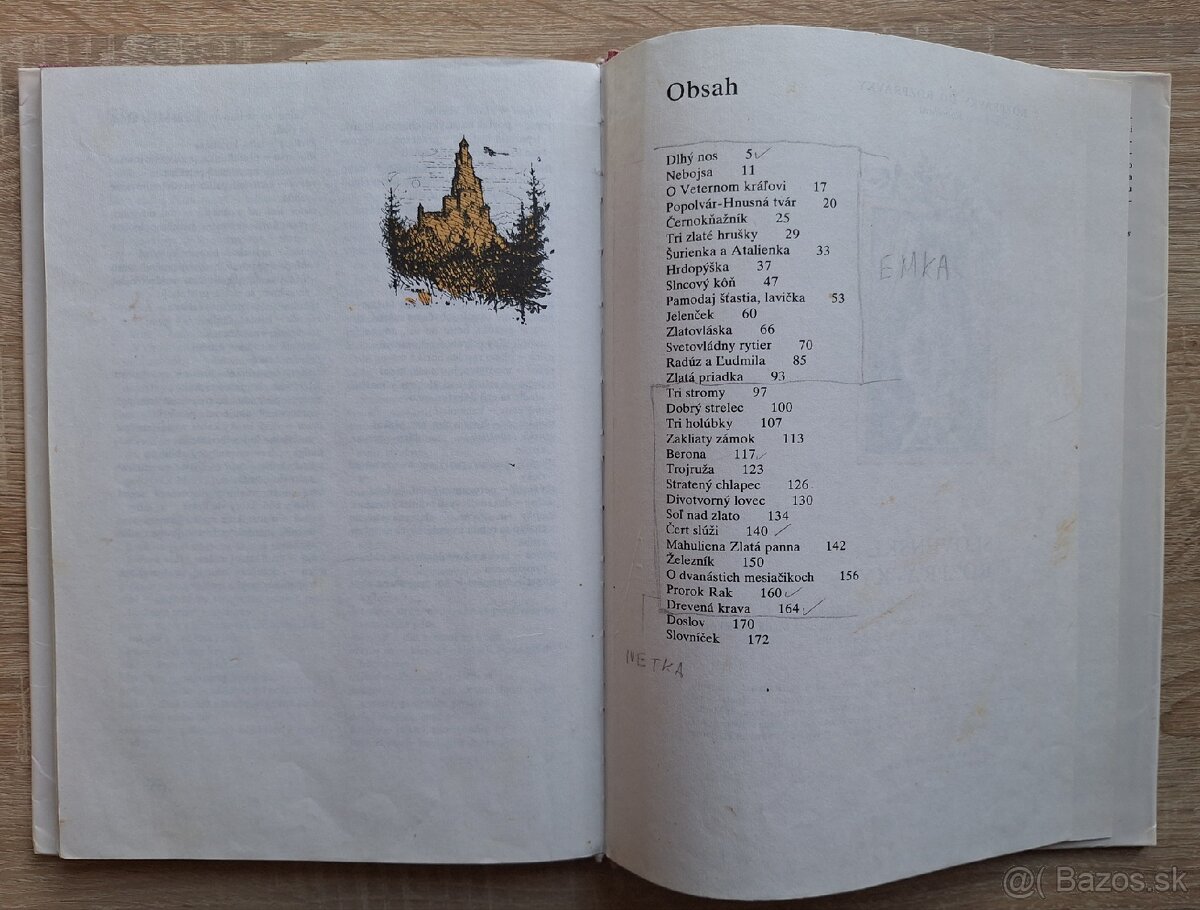 Obsah
Dlhý nos 5
Nebojsa 11
O Veternom kráľovi 17
Popolvár-Hnusná tvár 20
Černokňažník 25
Tri zlaté hrušky 29
Šurienka a Atalienka 33
Hrdopýška 37
Slncový kôň 47
Pamodaj šťastia, lavička 53
Jelenček 60
Zlatovláska 66
Svetovládny rytier 70
Radúz a Ľudmila 85
Zlatá priadka 93
Tri stromy 97
Dobrý strelec 100
Tri holúbky 107
Zakliaty zámok 113
Berona 117
Trojruža 123
Stratený chlapec 126
Divotvorný lovec 130
Soľ nad zlato 134
Čert slúži 140
Mahuliena Zlatá panna 142
Železník 150
O dvanástich mesiačikoch 156
Prorok Rak 160
Drevená krava 164
Doslov 170
Slovníček 172
EMKA
NETKA
@( Bazos.sk